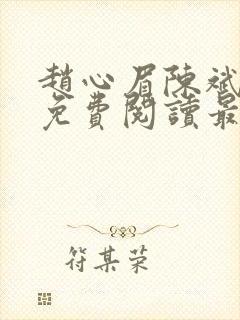 趙心眉陳斌
免費閱讀最
符某荣